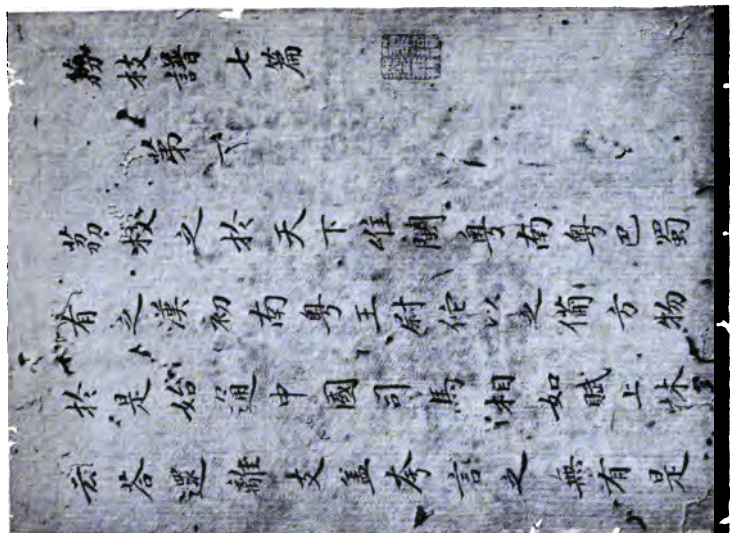 荔枝譜七篇
第一
荔枝之於天下唯閩粤南粤巴蜀
有之漢初南粤王尉佗以之備方物
於是始通中國司馬相如賦上林
云荅遝離支盖夸言之無有是